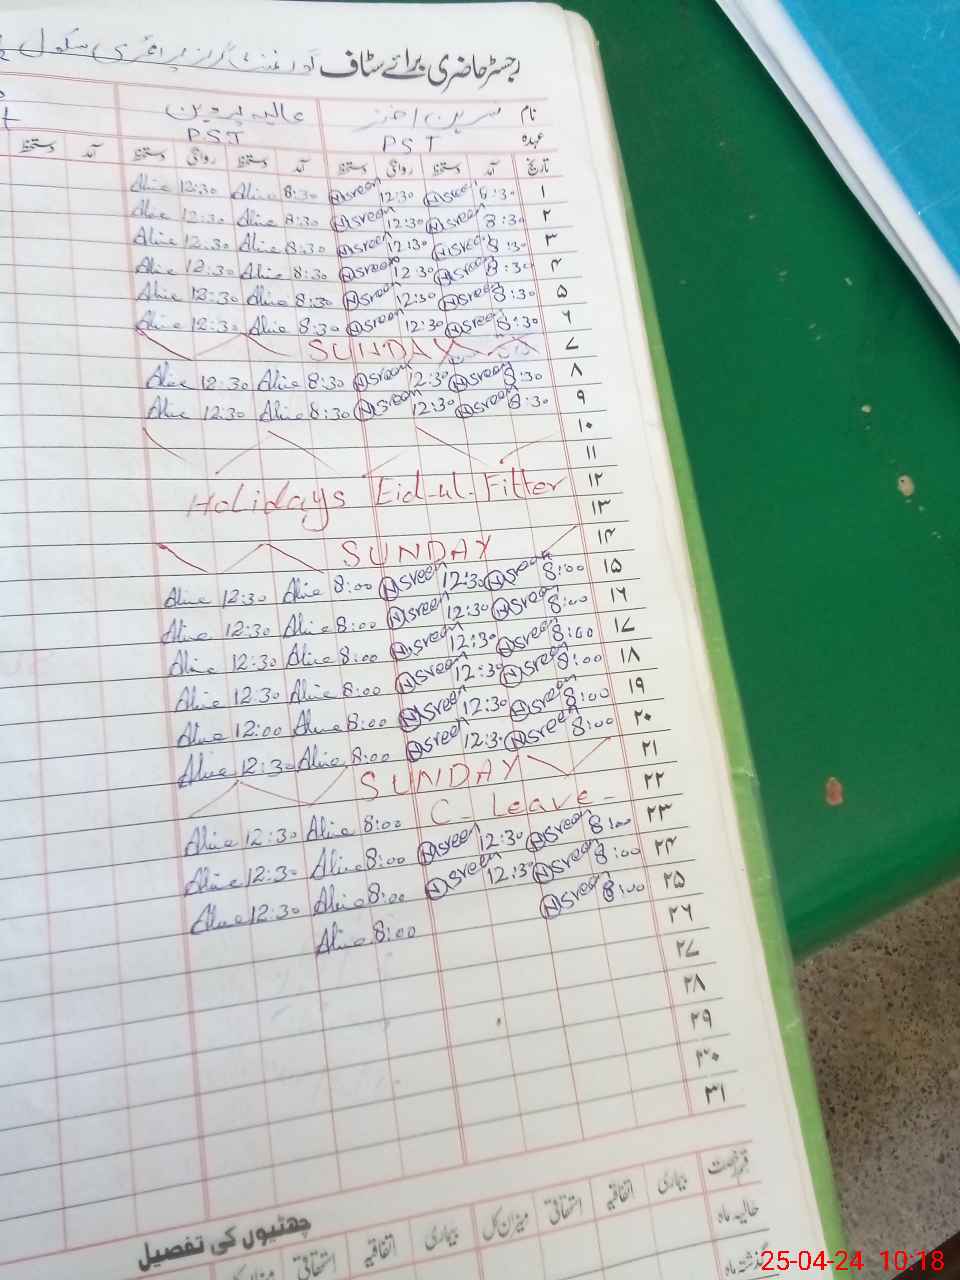 رجسٹر حاضری برائے سٹاف گورنمنٹ گرلز پرائمری سکول
نام نسرین اختر عالیہ پروین
عہدہ PST PST
تاریخ آمد دستخط روانگی دستخط آمد دستخط روانگی دستخط آمد دستخط
۱ 8:30 Nasreen 12:30 Nasreen 8:30 Alia 12:30 Alia
۲ 8:30 Nasreen 12:30 Nasreen 8:30 Alia 12:30 Alia
۳ 8:30 Nasreen 12:30 Nasreen 8:30 Alia 12:30 Alia
۴ 8:30 Nasreen 12:30 Nasreen 8:30 Alia 12:30 Alia
۵ 8:30 Nasreen 12:30 Nasreen 8:30 Alia 12:30 Alia
۶ 8:30 Nasreen 12:30 Nasreen 8:30 Alia 12:30 Alia
۷ SUNDAY
۸ 8:30 Nasreen 12:30 Nasreen 8:30 Alia 12:30 Alia
۹ 8:30 Nasreen 12:30 Nasreen 8:30 Alia 12:30 Alia
۱۰
۱۱
۱۲ Holidays Eid-ul-Fitter
۱۳
۱۴ SUNDAY
۱۵ 8:00 Nasreen 12:30 Nasreen 8:00 Alia 12:30 Alia
۱۶ 8:00 Nasreen 12:30 Nasreen 8:00 Alia 12:30 Alia
۱۷ 8:00 Nasreen 12:30 Nasreen 8:00 Alia 12:30 Alia
۱۸ 8:00 Nasreen 12:30 Nasreen 8:00 Alia 12:30 Alia
۱۹ 8:00 Nasreen 12:30 Nasreen 8:00 Alia 12:00 Alia
۲۰ 8:00 Nasreen 12:30 Nasreen 8:00 Alia 12:30 Alia
۲۱ SUNDAY
۲۲ C-Leave- 8:00 Alia 12:30 Alia
۲۳ 8:00 Nasreen 12:30 Nasreen 8:00 Alia 12:30 Alia
۲۴ 8:00 Nasreen 12:30 Nasreen 8:00 Alia 12:30 Alia
۲۵ 8:00 Nasreen 8:00 Alia
۲۶
۲۷
۲۸
۲۹
۳۰
۳۱
چھٹیوں کی تفصیل
قسم رخصت بیماری اتفاقیہ استحقاقی میزان کل بیماری اتفاقیہ استحقاقی میزان کل
حالیہ ماہ
گذشتہ ماہ
25-04-24 10:18